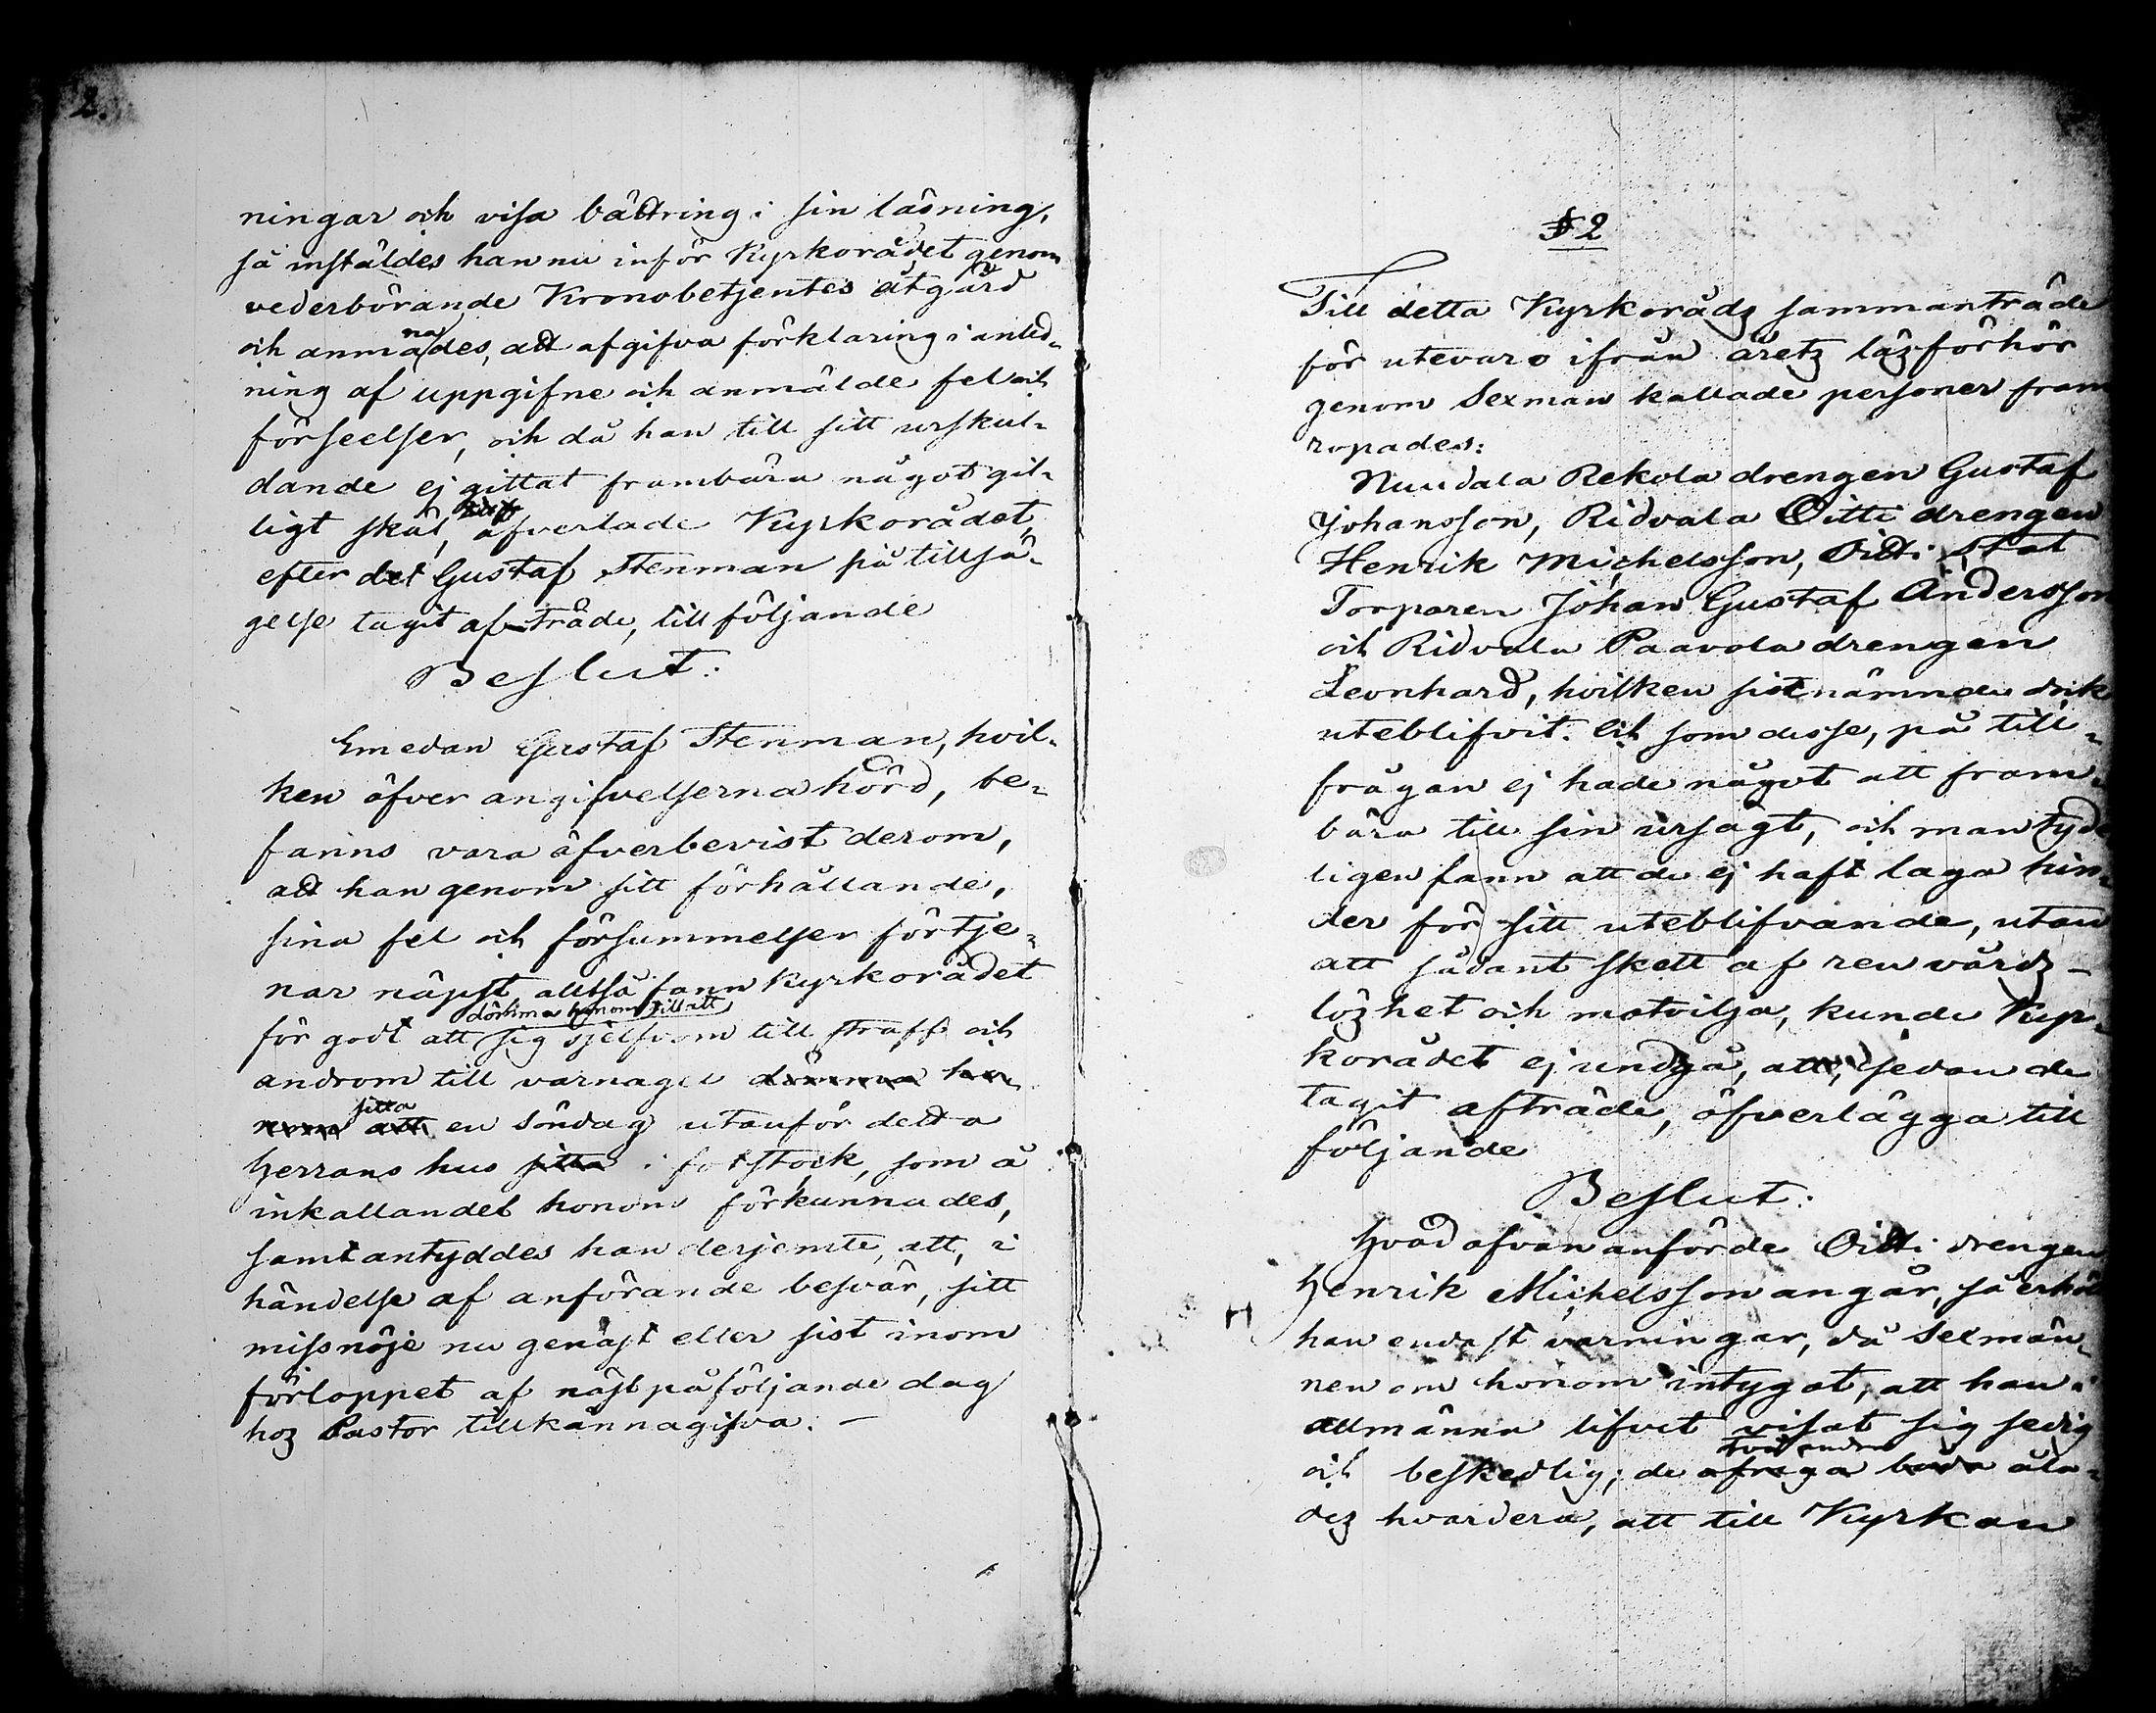 2.
ningar och visa bättring i sin läsning,
så instäldes han nu inför Kyrkorådet genom
vederbörande Kronobetjentes åtgärd
och anmanades, att afgifva förklaring i anled-
ning af uppgifne och anmälde fel och
förseelser, och då han till sitt urskul-
dande ej gittat frambära något gil-
ligt skäl, öfverlade Kyrkorådet
efter det Gustaf Stenman på tillsä-
gelse tagit af-träde, till följande
Beslut:
Emedan Gustaf Stenman, hvil-
ken öfver angifvelserna hörd, be-
fanns vara öfverbevist derom,
att han genom sitt förhållande,
sina fel och försummelser förtje-
nar näpst alltså fann Kyrkorådet
dömma honom till att
för godt att sig sjelfvom till straff och
androm till varnagel dömma ho-
sitta
nom att en söndag utanför detta
Herrans hus sitta i fotstock, som å
inkallandet honom förkunnades,
samt antyddes han derjemte, att, i
händelse af anförande besvär, sitt
missnöje nu genast eller sist inom
förloppet af näst påföljande dag
hoz Pastor tillkännagifva. –
§ 2
Till detta Kyrkorådz sammanträde
för utevaro ifrån åretz läzförhör
genom Sexman kallade personer fram
ropades:
Nuudala Rekola drengen Gustaf
Johansson, Ridvala Oitti drengen
Henrik Michelsson, Oitti Stat
Torparen Johan Gustaf Andersson
och Ridvala Paavola drengen
Leonhard, hvilken sistnämnde dock
uteblifvit. Och som desse, på till-
frågan ej hade något att fram-
bära till sin ursägt, och man tyde
ligen fann att de ej haft laga hin-
der för sitt uteblifvande, utan
att sådant skett af ren vårdz-
lözhet och motvilja, kunde Kyr-
korådet ej undgå, att, sedan de
tagit afträde, öfverlägga till
följande
Beslut:
Hvad ofvananförde Oitti drengen
Henrik Michelsson angår, så erhöll
han endast varningar, då Sexmän-
nen om honom intygat, att han i
allmänna lifvet visat sig sedig
två andra
och beskedlig; de öfriga båda åla-
dez hvardera, att till Kyrkan